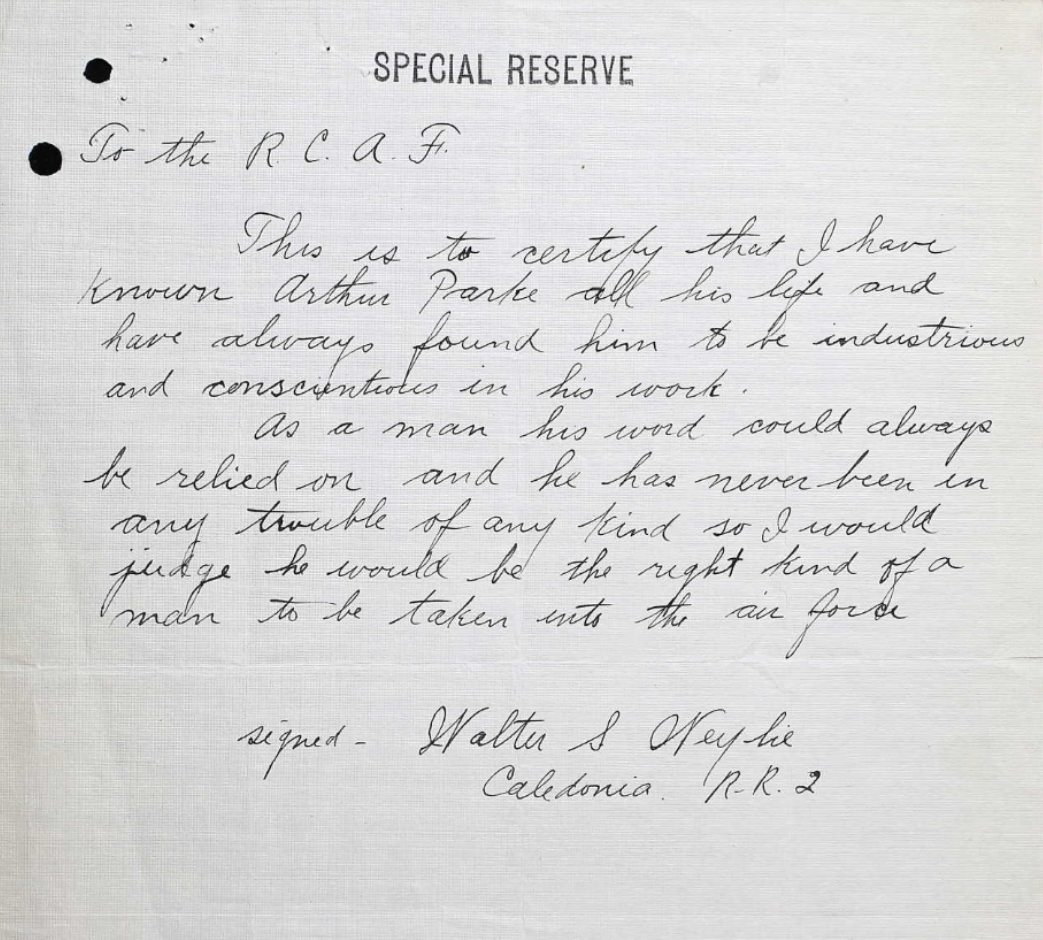 SPECIAL RESERVE
To the R. C. A. F.
This is to certify that I have
known Arthur Parke all his life and
have always found him to be industrious
and conscientious in his work.
As a man his word could always
be relied on and he has never been in
any trouble of any kind so I would
judge he would be the right kind of a
man to be taken into the air force
signed - Walter S
Caledonia. R.R. 2